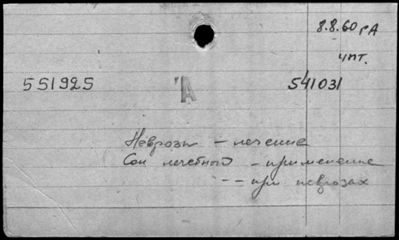 8.8.60 рА
чпт.
551925 А 541031
Неврозы - лечение
Сон лечебный - применение
-"- при неврозах